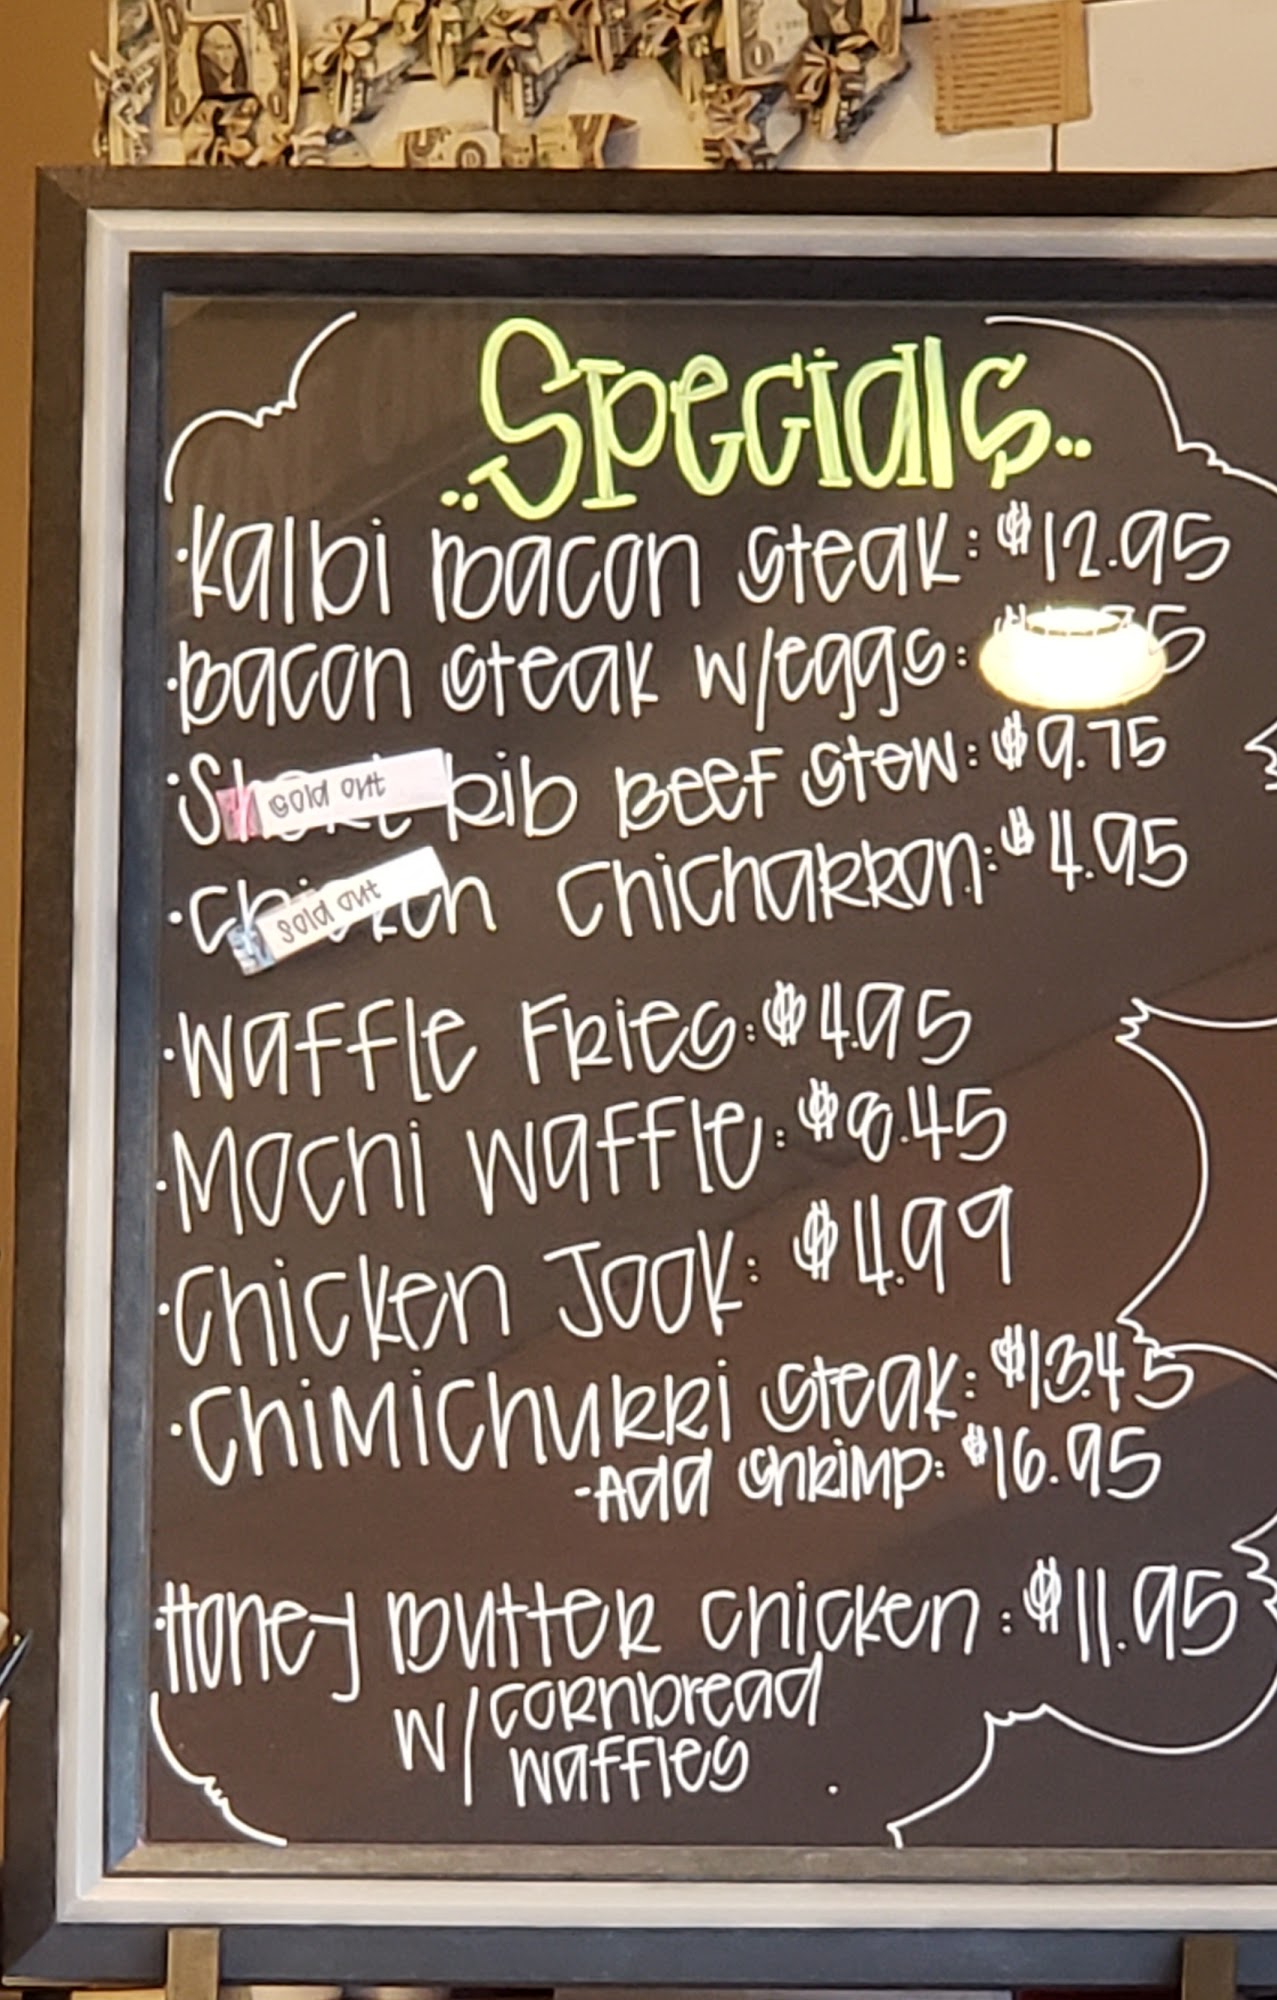 ..Specials..
·Kalbi Bacon Steak: $12.95
·Bacon Steak w/eggs:
·Short Rib Beef Stew: $9.75
sold out
·Chicken Chicharron: $4.95
sold out
·Waffle Fries: $4.95
·Mochi Waffle: $8.45
·Chicken Jook: $4.99
·Chimichurri Steak: $13.45
-Add Shrimp: $16.95
·Honey Butter Chicken: $11.95
w/cornbread
waffles